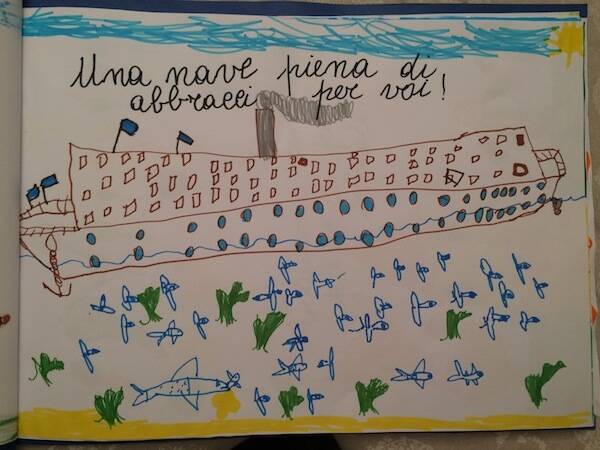 Una nave piena di
abbracci per voi!